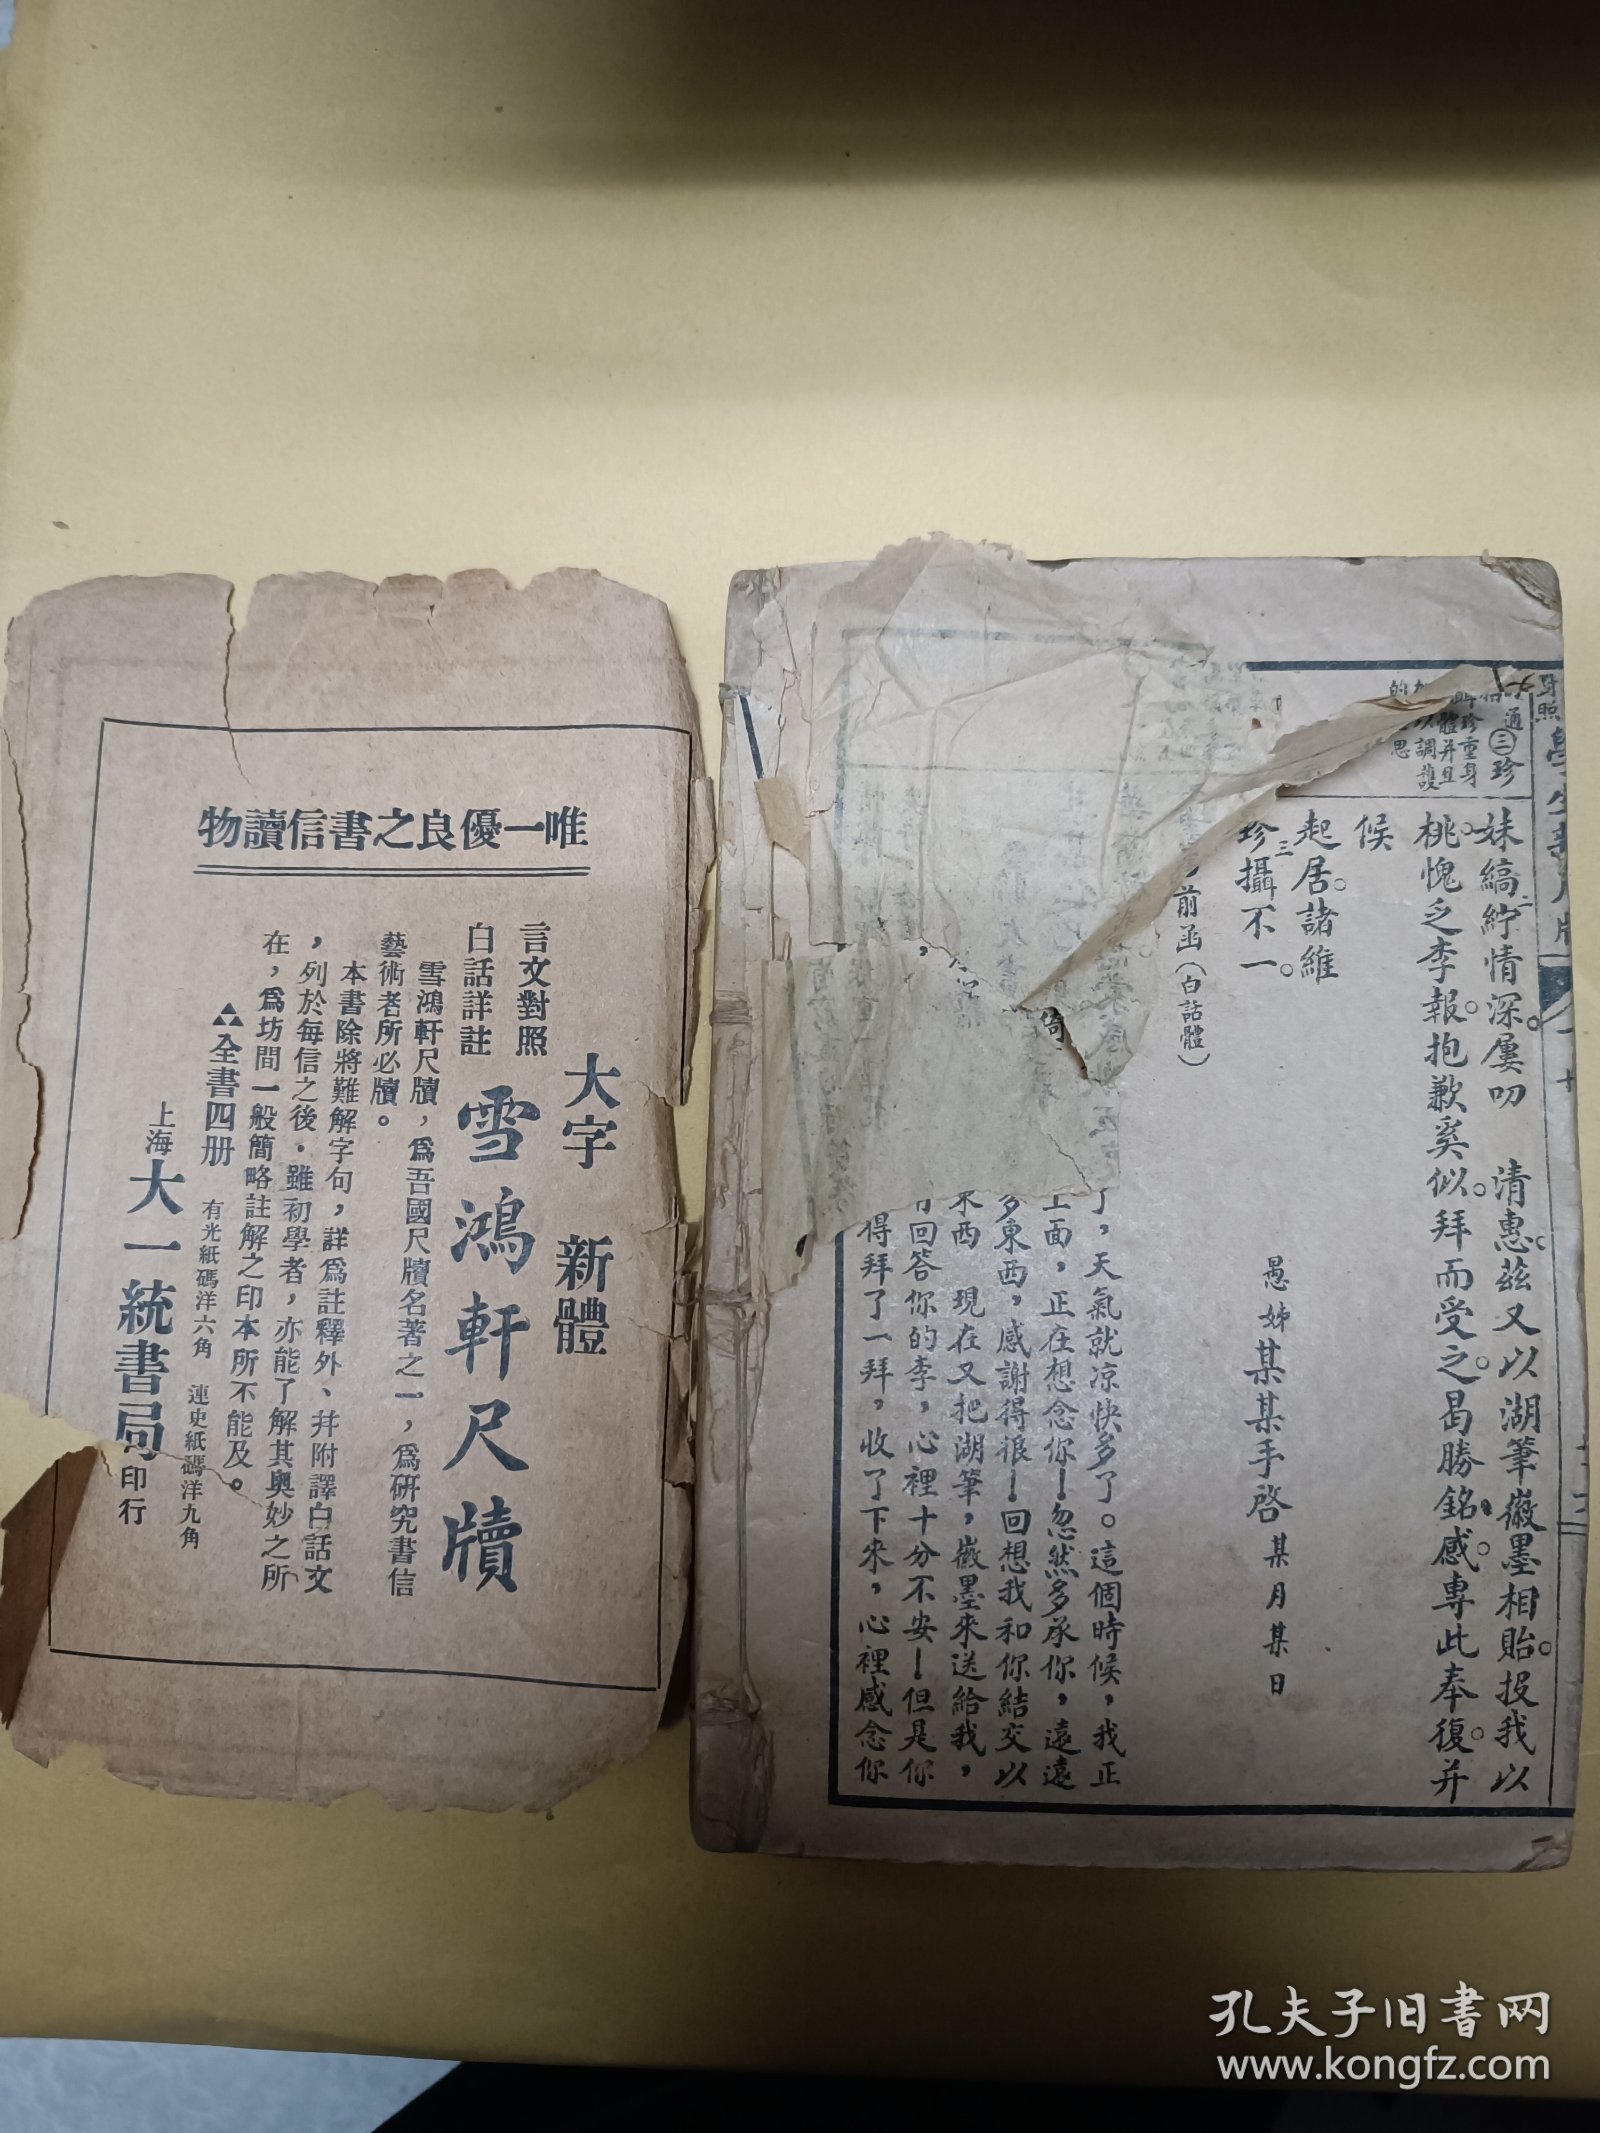 唯一優良之書信讀物
大字 新體
言文對照
白話詳註
雪鴻軒尺牘
雪鴻軒尺牘，爲吾國尺牘名著之一，爲研究書信
藝術者所必牘。
本書除將難解字句，詳爲註釋外、幷附譯白話文
，列於每信之後。雖初學者，亦能了解其奧妙之所
在，爲坊間一般簡略註解之印本所不能及。
全書四册
有光紙碼洋六角
連史紙碼洋九角
上海大一統書局印行
通㊂珍
珍重身
體并且
以調護
妹縞紵情深。屢叨 清惠。茲又以湖筆徽墨相貽。投我以
桃。愧乏李報。抱歉奚似。拜而受之。曷勝銘感。專此奉復。并
候
起居。諸維
珍攝不一。
愚姊某某手啓 某月某日
前函（白話體）
了，天氣就凉快多了。這個時候，我正
上面，正在想念你！忽然多承你，遠遠
多東西，感謝得很！回想我和你結交以
東西 現在又把湖筆，徽墨來送給我，
回答你的李，心裡十分不安！但是你
得拜了一拜，收了下來，心裡感念你
孔夫子旧书网
www.kongfz.com